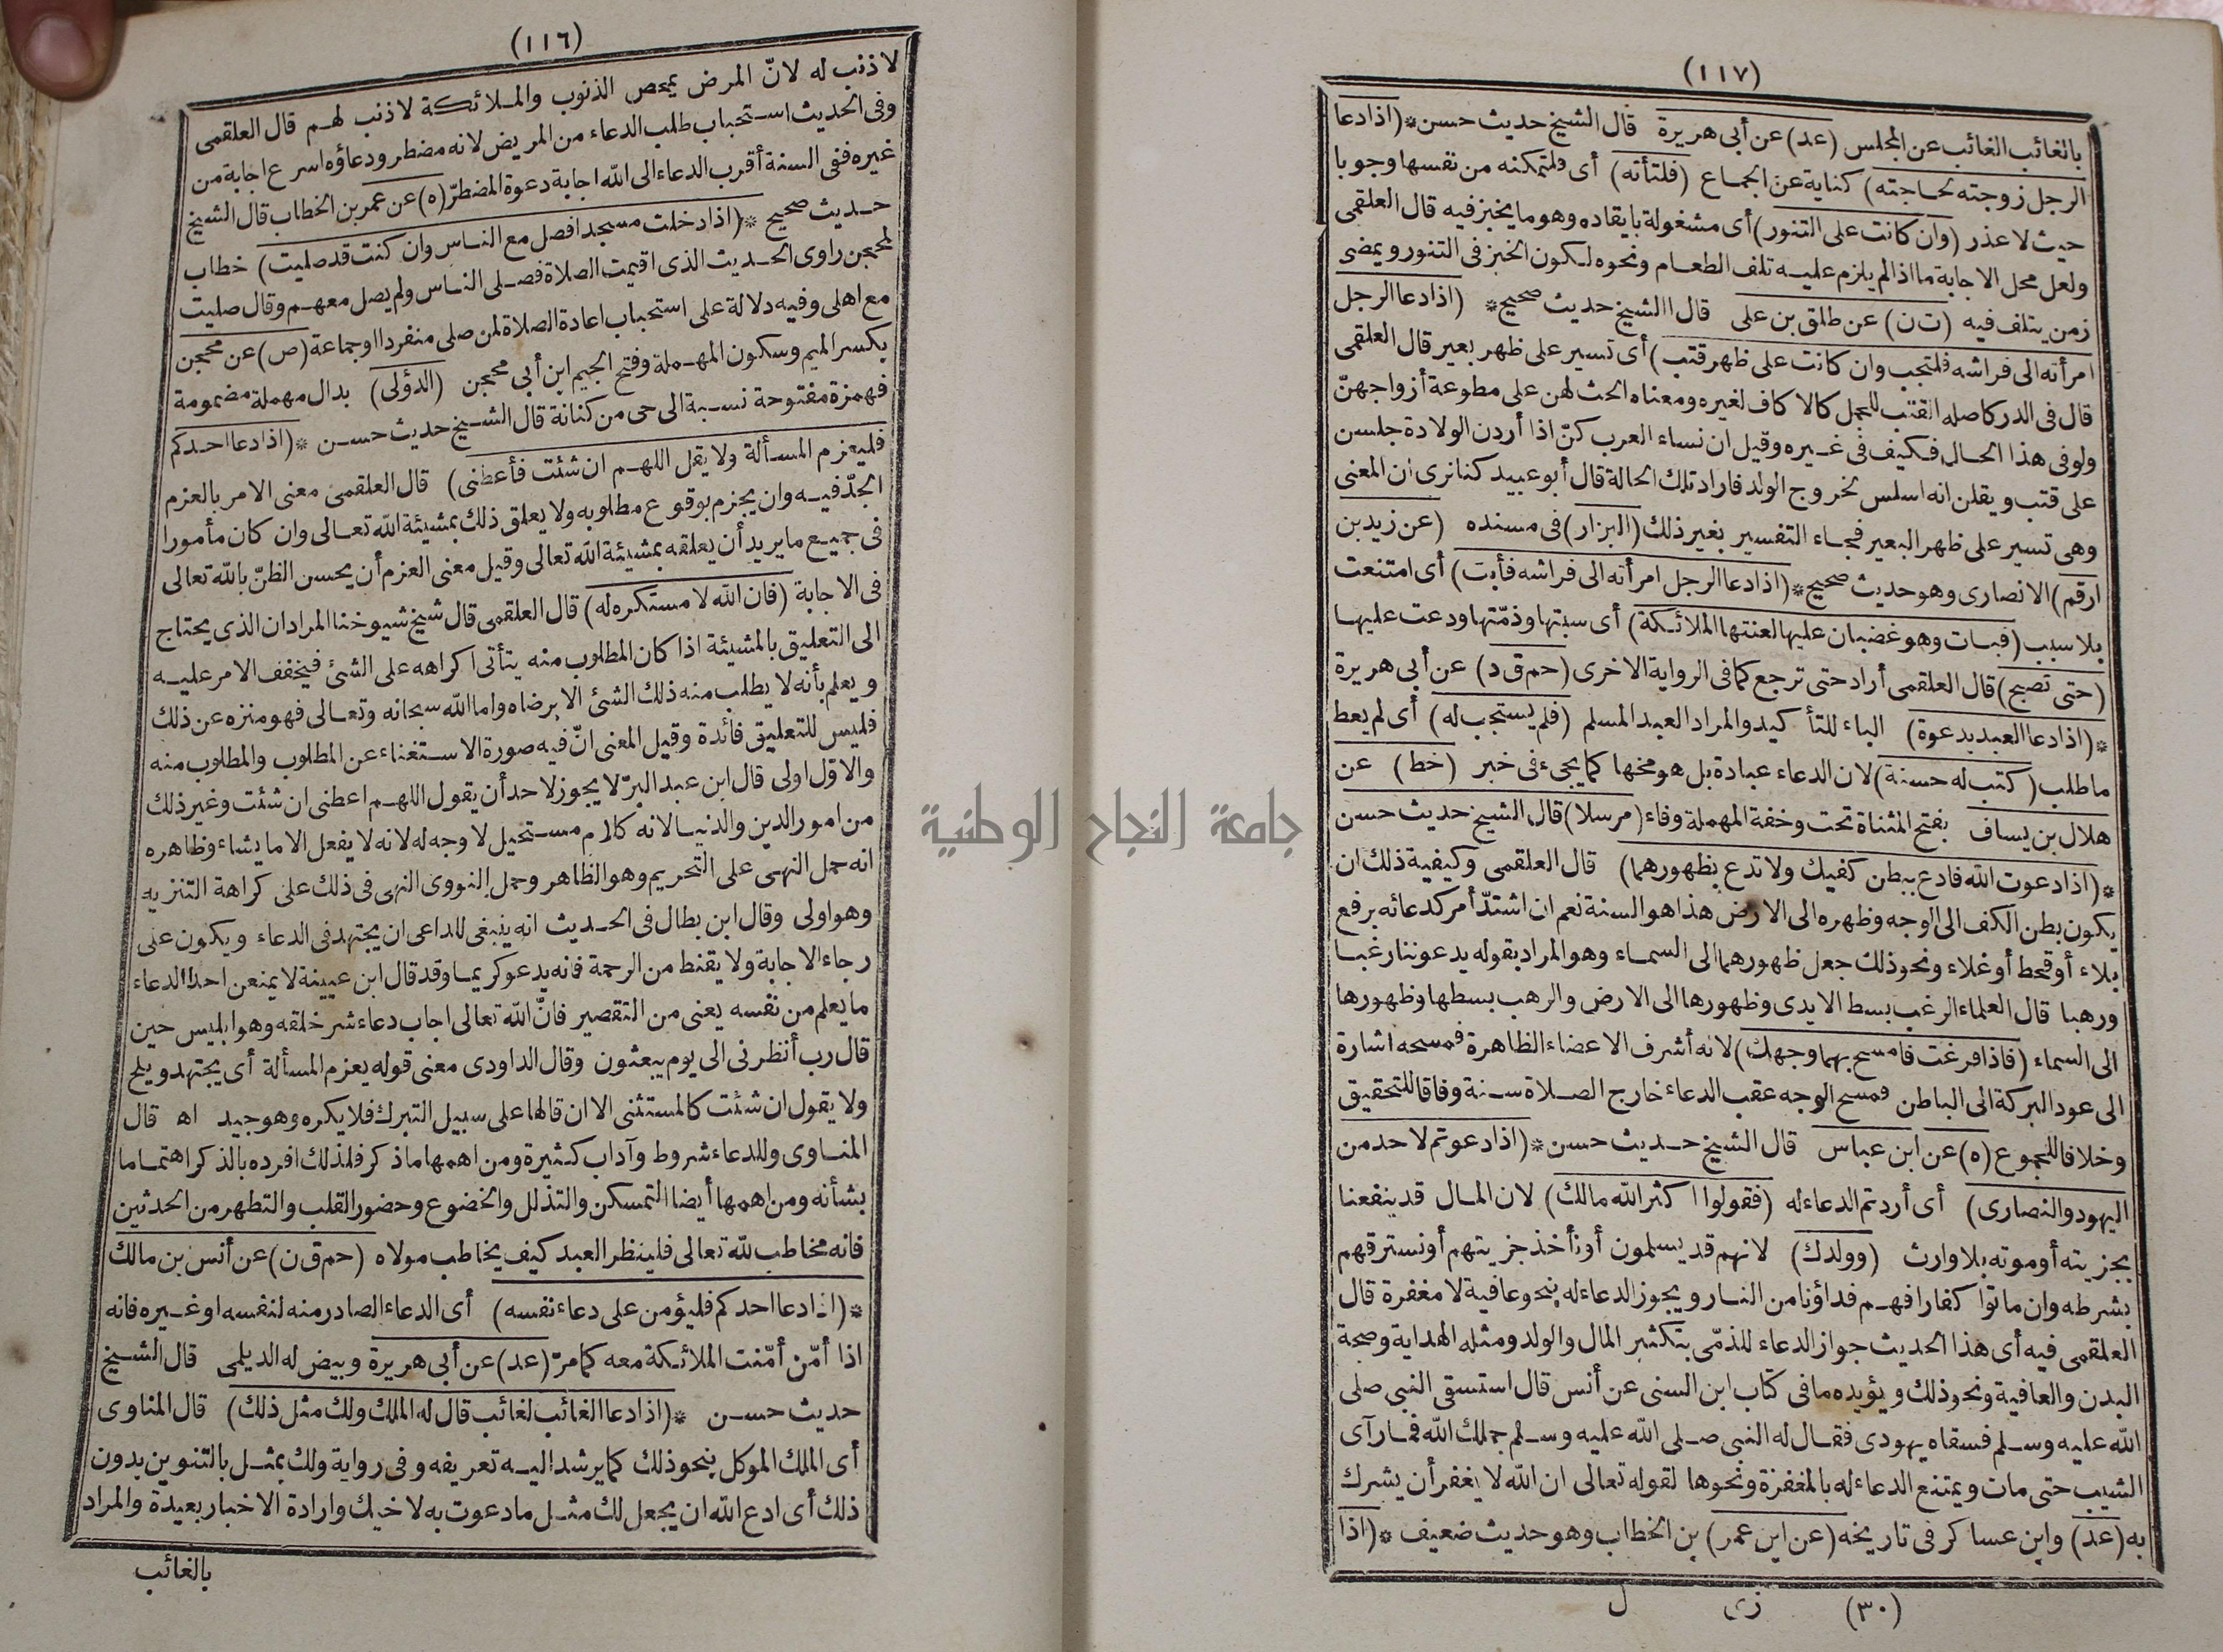 (١١٦)
لا ذنب له لانّ المرض يمحص الذنوب والملائكة لا ذنب لهم قال العلقمى
وفى الحديث استحباب طلب الدعاء من المريض لانه مضطر ودعاؤه اسرع اجابة من
غيره ففى السنة أقرب الدعاء الى الله اجابة دعوة المضطرّ (ه) عن عمر بن الخطاب قال الشيخ
حديث صحيح * (اذا دخلت مسجدا فصل مع الناس وان كنت قد صليت) خطاب
لمحجن راوى الحديث الذى اقيمت الصلاة فصلى الناس ولم يصل معهم وقال صليت
مع اهلى وفيه دلالة على استحباب اعادة الصلاة لمن صلى منفردا او جماعة (ص) عن محجن
بكسر الميم وسكون المهملة وفتح الجيم ابن أبى محجن (الدؤلى) بدال مهملة مضمومة
فهمزة مفتوحة نسبة الى حى من كنانة قال الشيخ حديث حسن * (اذا دعا احدكم
فليعزم المسألة ولا يقل اللهم ان شئت فأعطنى) قال العلقمى معنى الامر بالعزم
الجدّ فيه وان يجزم بوقوع مطلوبه ولا يعلق ذلك بمشيئة الله تعالى وان كان مأمورا
فى جميع ما يريد أن يعلقه بمشيئة الله تعالى وقيل معنى العزم أن يحسن الظنّ بالله تعالى
فى الاجابة (فان الله لا مستكره له) قال العلقمى قال شيخ شيوخنا المراد ان الذى يحتاج
الى التعليق بالمشيئة اذا كان المطلوب منه يتأتى اكراهه على الشئ فيخفف الامر عليه
ويعلم بأنه لا يطلب منه ذلك الشئ الا برضاه واما الله سبحانه وتعالى فهو منزه عن ذلك
فليس للتعليق فائدة وقيل المعنى انّ فيه صورة الاستغناء عن المطلوب والمطلوب منه
والاوّل اولى قال ابن عبد البرّ لا يجوز لاحد أن يقول اللهم اعطنى ان شئت وغير ذلك
من امور الدين والدنيا لانه كلام مستحيل لا وجه له لانه لا يفعل الا ما يشاء وظاهره
انه حمل النهى على التحريم وهو الظاهر وحمل النووى النهى فى ذلك على كراهة التنزيه
وهو اولى وقال ابن بطال فى الحديث انه ينبغى للداعى ان يجتهد فى الدعاء ويكون على
رجاء الاجابة ولا يقنط من الرحمة فانه يدعو كريما وقد قال ابن عيينة لا يمنعن احدا الدعاء
ما يعلم من نفسه يعنى من التقصير فانّ الله تعالى اجاب دعاء شر خلقه وهو ابليس حين
قال رب أنظرنى الى يوم يبعثون وقال الداودى معنى قوله يعزم المسألة أى يجتهد ويلح
ولا يقول ان شئت كالمستثنى الا ان قالها على سبيل التبرك فلا يكره وهو جيد اه قال
المناوى وللدعاء شروط وآداب كثيرة ومن اهمها ما ذكر فلذلك افرده بالذكر اهتماما
بشأنه ومن اهمها أيضا التمسكن والتذلل والخضوع وحضور القلب والتطهر من الحدثين
فانه مخاطب لله تعالى فلينظر العبد كيف يخاطب مولاه (حم ق ن) عن أنس بن مالك
* (اذا دعا احدكم فليؤمن على دعاء نفسه) أى الدعاء الصادر منه لنفسه او غيره فانه
اذا أمّن أمّنت الملائكة معه كما مرّ (عد) عن أبى هريرة وبيض له الديلمى قال الشيخ
حديث حسن * (اذا دعا الغائب لغائب قال له الملك ولك مثل ذلك) قال المناوى
أى الملك الموكل بنحو ذلك كما يرشد اليه تعريفه وفى رواية ولك بمثل بالتنوين بدون
ذلك أى ادع الله ان يجعل لك مثل ما دعوت به لاخيك وارادة الاخبار بعيدة والمراد
بالغائب
(١١٧)
بالغائب الغائب عن المجلس (عد) عن أبى هريرة قال الشيخ حديث حسن * (اذا دعا
الرجل زوجته لحاجته) كناية عن الجماع (فلتأته) أى فلتمكنه من نفسها وجوبا
حيث لا عذر (وان كانت على التنور) أى مشغولة بايقاده وهو ما يخبز فيه قال العلقمى
ولعل محل الاجابة ما اذا لم يلزم عليه تلف الطعام ونحوه لكون الخبز فى التنور ويمضى
زمن يتلف فيه (ت ن) عن طلق بن على قال االشيخ حديث صحيح * (اذا دعا الرجل
امرأته الى فراشه فلتجب وان كانت على ظهر قتب) أى تسير على ظهر بعير قال العلقمى
قال فى الدر كاصله القتب للجمل كالاكاف لغيره ومعناه الحث لهن على مطوعة أزواجهنّ
ولو فى هذا الحال فكيف فى غيره وقيل ان نساء العرب كنّ اذا أردن الولادة جلسن
على قتب ويقلن انه اسلس لخروج الولد فاراد تلك الحالة قال أبو عبيد كنا نرى ان المعنى
وهى تسير على ظهر البعير فجاء التفسير بغير ذلك (البزار) فى مسنده (عن زيد بن
ارقم) الانصارى وهو حديث صحيح * (اذا دعا الرجل امرأته الى فراشه فأبت) أى امتنعت
بلا سبب (فبات وهو غضبان عليها لعنتها الملائكة) أى سبتها وذمّتها ودعت عليها
(حتى تصبح) قال العلقمى أراد حتى ترجع كما فى الرواية الاخرى (حم ق د) عن أبى هريرة
* (اذا دعا العبد بدعوة) الباء للتأكيد والمراد العبد المسلم (فلم يستجب له) أى لم يعط
ما طلب (كتب له حسنة) لان الدعاء عبادة بل هو مخها كما يجىء فى خبر (خط) عن
هلال بن يساف بفتح المثناة تحت وخفة المهملة وفاء (مرسلا) قال الشيخ حديث حسن
* (اذا دعوت الله فادع ببطن كفيك ولا تدع بظهورهما) قال العلقمى وكيفية ذلك ان
يكون بطن الكف الى الوجه وظهره الى الارض هذا هو السنة نعم ان اشتدّ أمر كدعائه برفع
بلاء أو قحط أو غلاء ونحو ذلك جعل ظهورهما الى السماء وهو المراد بقوله يدعوننا رغبا
ورهبا قال العلماء الرغب بسط الايدى وظهورها الى الارض والرهب بسطها وظهورها
الى السماء (فاذا فرغت فامسح بهما وجهك) لانه أشرف الاعضاء الظاهرة فمسحه اشارة
الى عود البركة الى الباطن فمسح الوجه عقب الدعاء خارج الصلاة سنة وفاقا للتحقيق
وخلافا للمجموع (ه) عن ابن عباس قال الشيخ حديث حسن * (اذا دعوتم لاحد من
اليهود والنصارى) أى أردتم الدعاء له (فقولوا اكثر الله مالك) لان المال قد ينفعنا
بجزيته أو موته بلا وارث (وولدك) لانهم قد يسلمون أو نأخذ جزيتهم أو نسترقهم
بشرطه وان ماتوا كفارا فهم فداؤنا من النار ويجوز الدعاء له بنحو عافية لا مغفرة قال
العلقمى فيه أى هذا الحديث جواز الدعاء للذمّى بتكثير المال والولد ومثله الهداية وصحة
البدن والعافية ونحو ذلك ويؤيده ما فى كتاب ابن السنى عن أنس قال استسقى النبى صلى
الله عليه وسلم فسقاه يهودى فقال له النبى صلى الله عليه وسلم جملك الله فما رآى
الشيب حتى مات ويمتنع الدعاء له بالمغفرة ونحوها لقوله تعالى ان الله لا يغفر أن يشرك
به (عد) وابن عساكر فى تاريخه (عن ابن عمر) بن الخطاب وهو حديث ضعيف * (اذا
(٣٠) زى ل
جامعة النجاح الوطنية